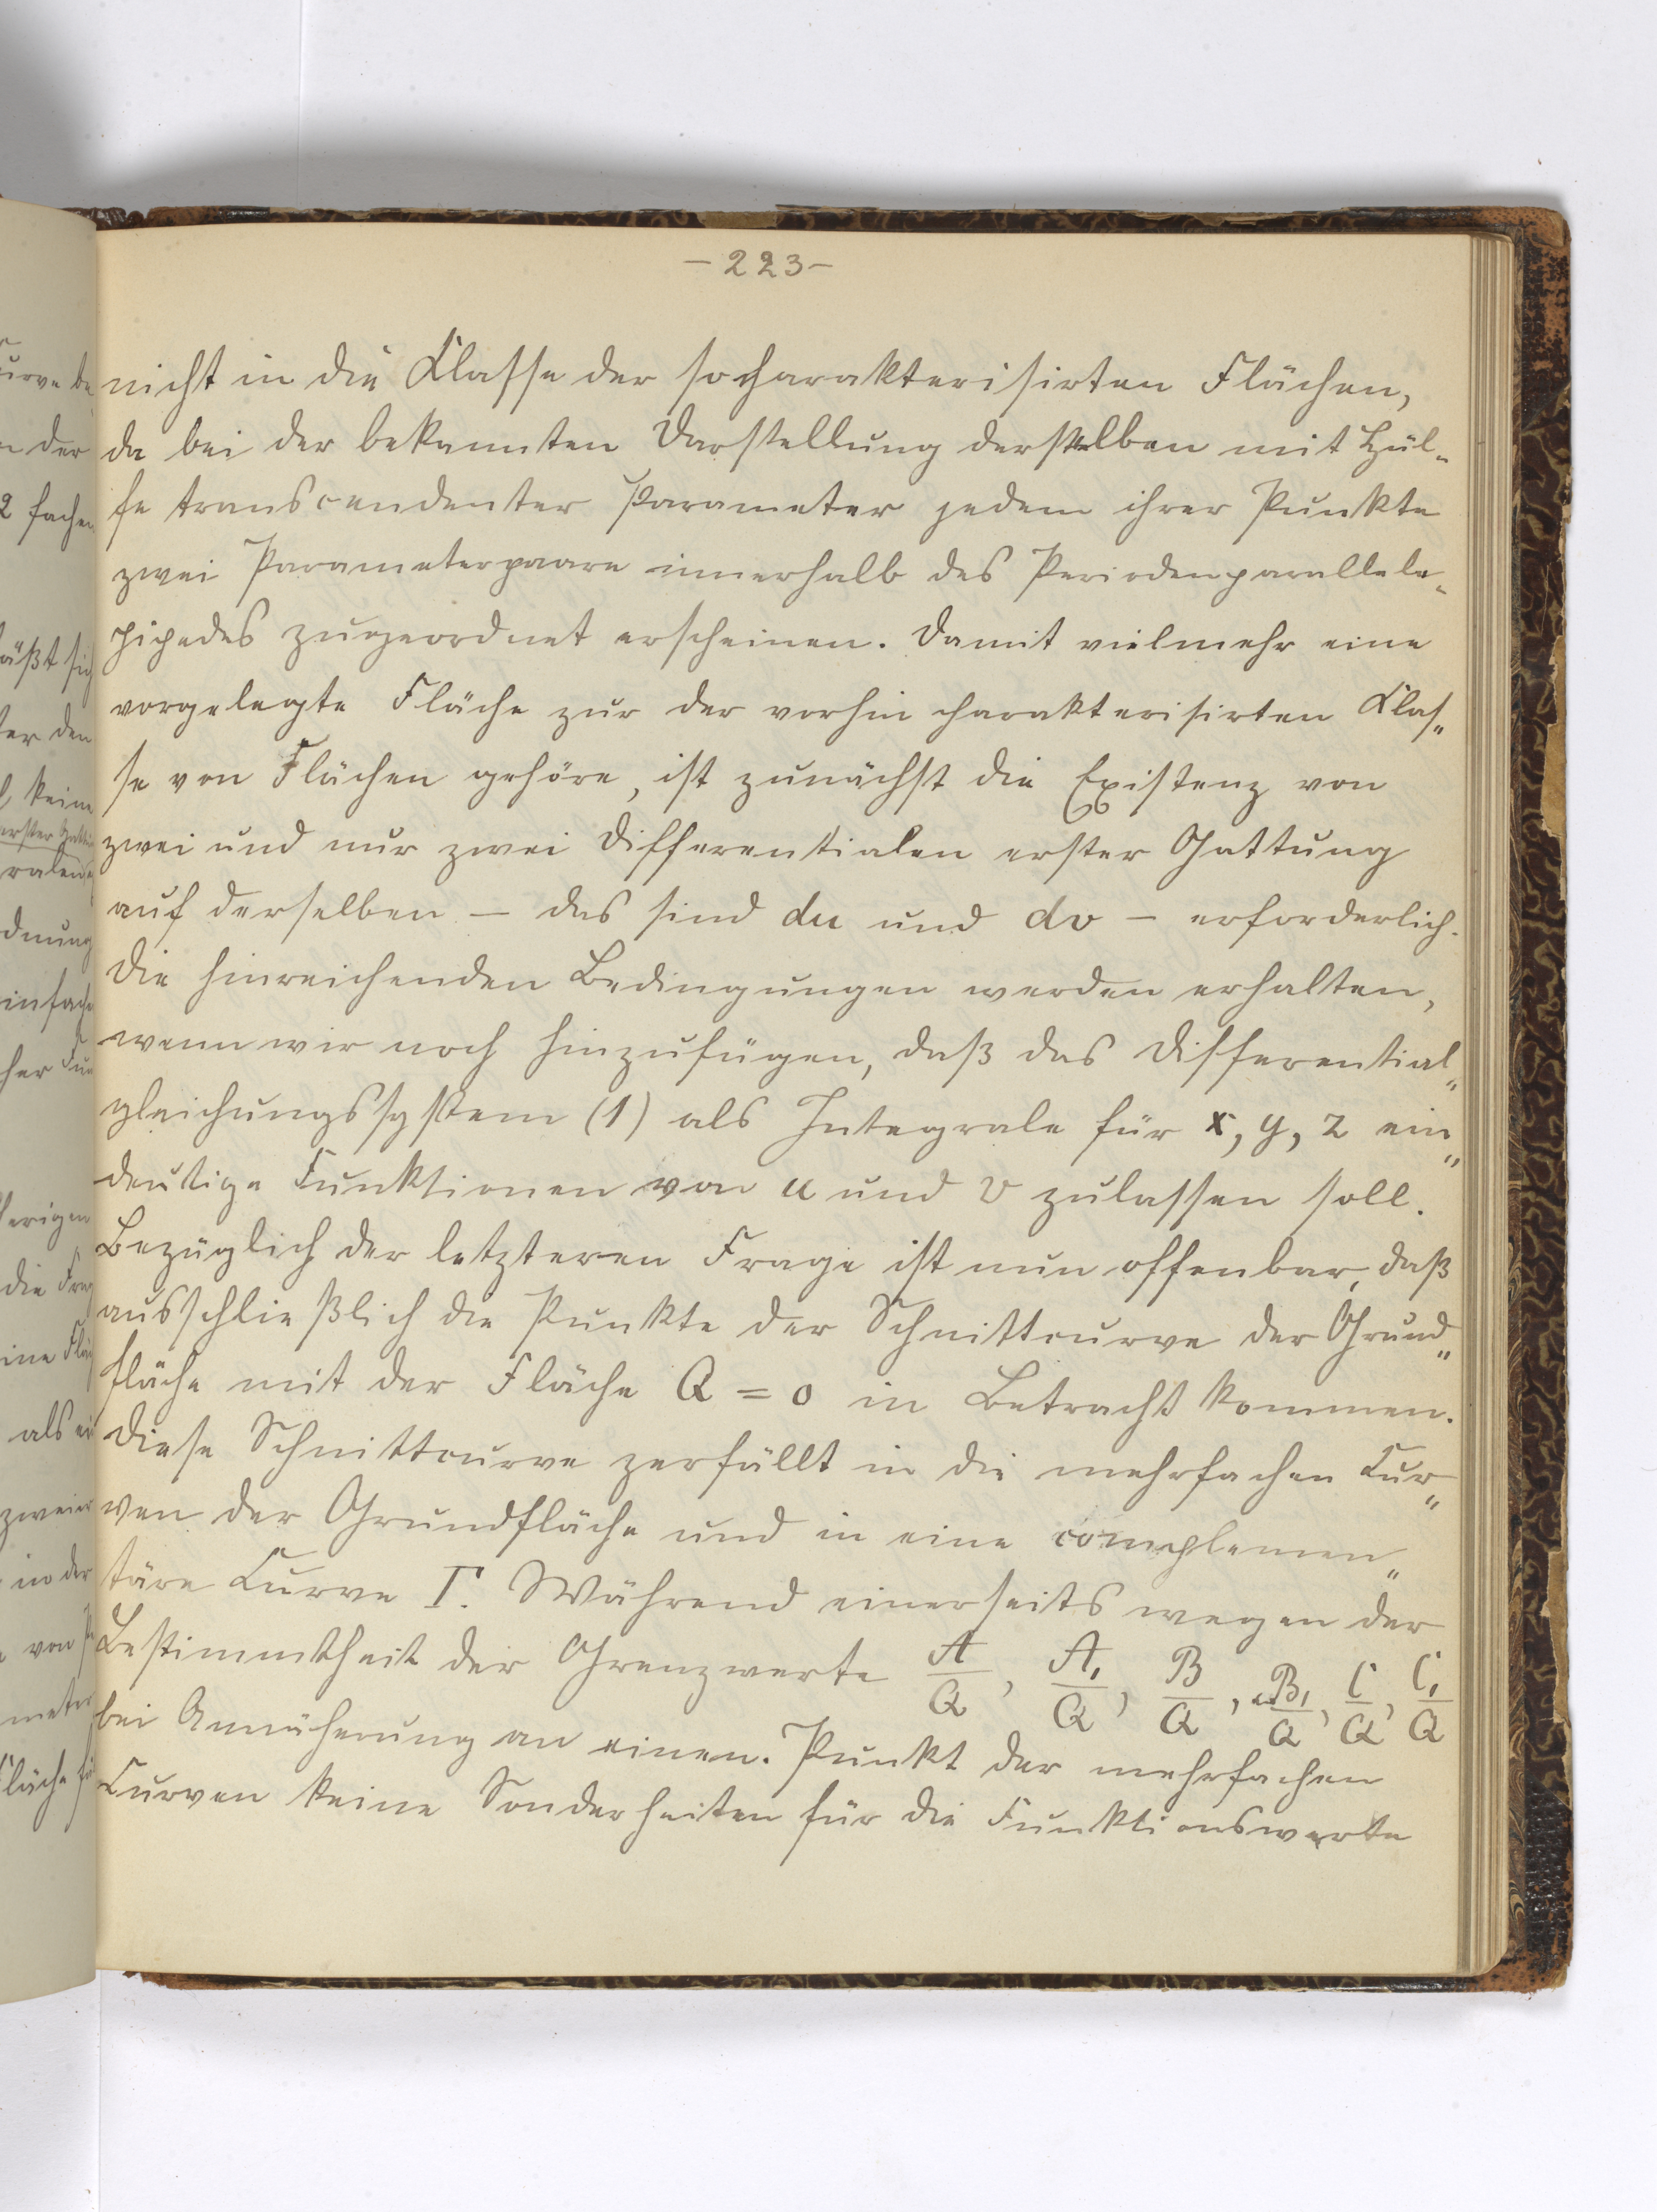 - 223 -
nicht in die Klasse der so charakterisirten Flächen,
da bei der bekannten Darstellung derselben mit Hül-
fe transcendenter Parameter jedem ihrer Punkte
zwei Parameterpaare innerhalb des Periodenparallele-
pipedes zugeordnet erscheinen. Damit vielmehr eine
vorgelegte Fläche zur der vorhin charakterisirten Klas-
se von Flächen gehöre, ist zunächst die Existenz von
zwei und nur zwei Differentialen erster Gattung
auf derselben – das sind du und dv – erforderlich.
Die hinreichenden Bedingungen werden erhalten,
wenn wir noch hinzufügen, daß das Differential-
gleichungssystem (1) als Integrale für x, y, z ein-
deutige Funktionen von u und v zulassen soll.
Bezüglich der letzteren Frage ist nun offenbar, daß
ausschließlich die Punkte der Schnittcurve der Grund-
fläche mit der Fläche Q = 0 in Betracht kommen.
Diese Schnittcurve zerfällt in die mehrfachen Cur-
ven der Grundfläche und in eine complemen-
täre Curve Γ. Während einerseits wegen der
Bestimmtheit der Grenzwerte A/Q, A₁/Q, B/Q, B₁/Q, C/Q, C₁/Q
bei Annäherung an einen Punkt der mehrfachen
Curven keine Sonderheiten für die Funktionswerte